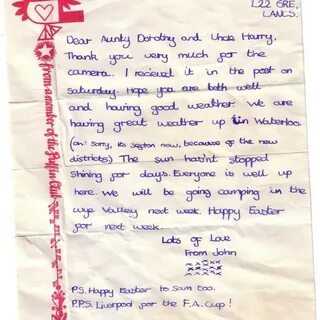 L22 6RE,
LANCS.
Dear Aunty Dorothy and Uncle Harry,
Thank you very much for the
camera. I recieved it in the post on
saturday. Hope you are both well
and having good weather. We are
having great weather up in Waterloo.
(oh! sorry, its Sefton now, because of the new
districts) The sun has'nt stopped
shining for days. Everyone is well up
here. We will be going camping in the
Wye Valley next week. Happy Easter
for next week.
Lots of Love
From John
xxxxx
xxxxx
xxxxx
P.S. Happy Easter to Sam too.
P.P.S. Liverpool for the F.A. Cup!
from a member of the Puffin Club